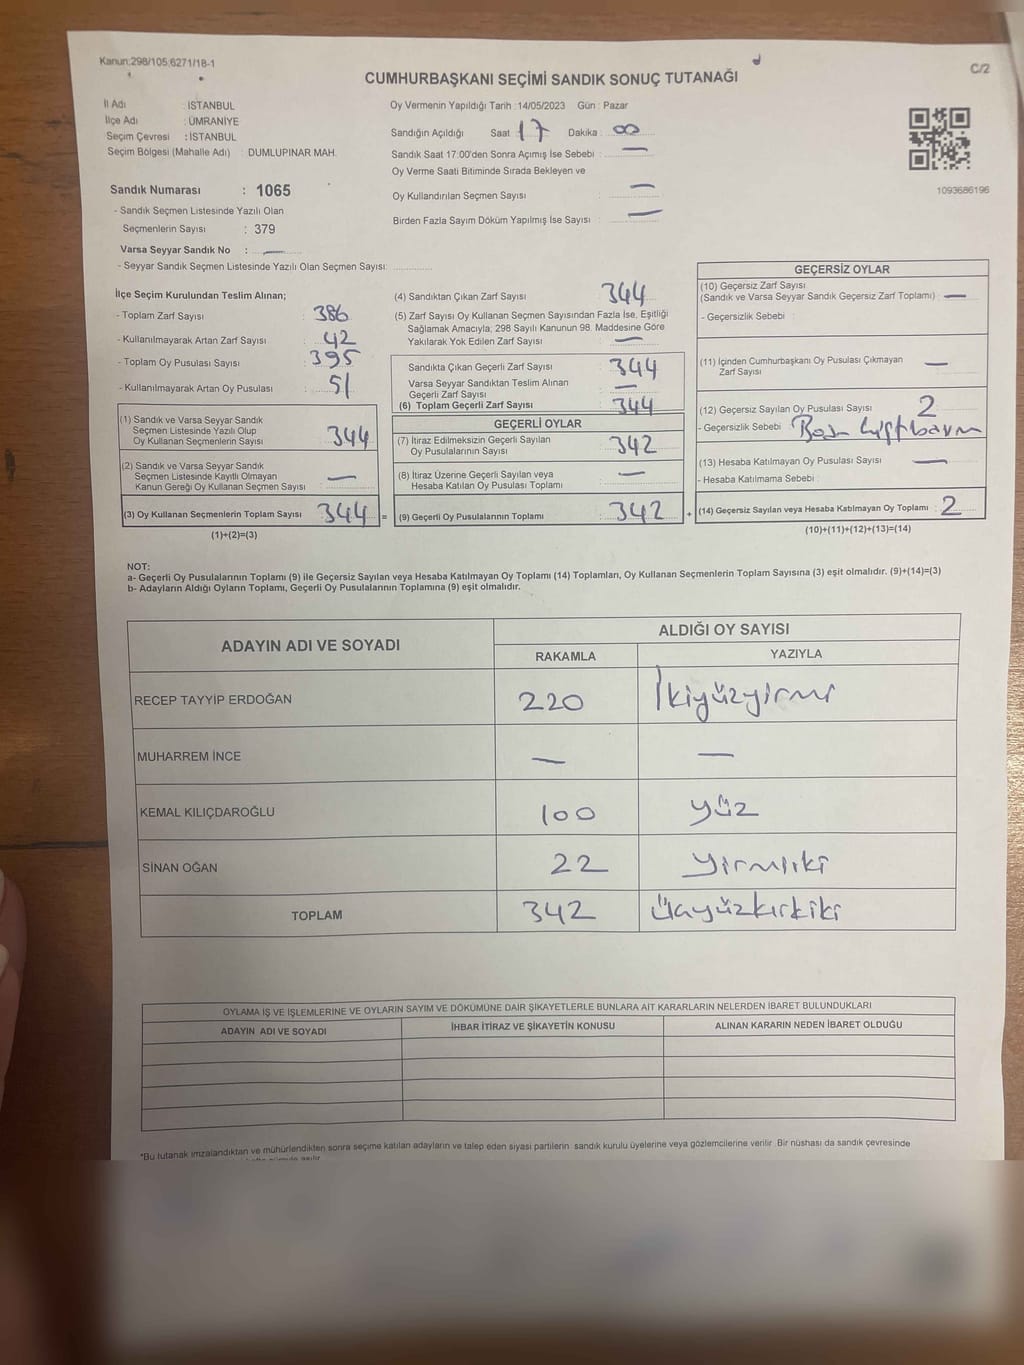 Kanun:298/105;6271/18-1
C/2
CUMHURBAŞKANI SEÇİMİ SANDIK SONUÇ TUTANAĞI
İl Adı : İSTANBUL
İlçe Adı : ÜMRANİYE
Seçim Çevresi : İSTANBUL
Seçim Bölgesi (Mahalle Adı) : DUMLUPINAR MAH.
Oy Vermenin Yapıldığı Tarih : 14/05/2023 Gün : Pazar
Sandığın Açıldığı Saat 17 Dakika : 00
Sandık Saat 17:00'den Sonra Açımış İse Sebebi : —
Oy Verme Saati Bitiminde Sırada Bekleyen ve
Oy Kullandırılan Seçmen Sayısı : —
Birden Fazla Sayım Döküm Yapılmış İse Sayısı : —
1093686196
Sandık Numarası : 1065
- Sandık Seçmen Listesinde Yazılı Olan
Seçmenlerin Sayısı : 379
Varsa Seyyar Sandık No : —
- Seyyar Sandık Seçmen Listesinde Yazılı Olan Seçmen Sayısı:
İlçe Seçim Kurulundan Teslim Alınan;
- Toplam Zarf Sayısı : 386
- Kullanılmayarak Artan Zarf Sayısı : 42
- Toplam Oy Pusulası Sayısı : 395
- Kullanılmayarak Artan Oy Pusulası : 51
(1) Sandık ve Varsa Seyyar Sandık
Seçmen Listesinde Yazılı Olup
Oy Kullanan Seçmenlerin Sayısı : 344
(2) Sandık ve Varsa Seyyar Sandık
Seçmen Listesinde Kayıtlı Olmayan
Kanun Gereği Oy Kullanan Seçmen Sayısı : —
(3) Oy Kullanan Seçmenlerin Toplam Sayısı : 344 =
(1)+(2)=(3)
(4) Sandıktan Çıkan Zarf Sayısı : 344
(5) Zarf Sayısı Oy Kullanan Seçmen Sayısından Fazla İse, Eşitliği
Sağlamak Amacıyla; 298 Sayılı Kanunun 98. Maddesine Göre
Yakılarak Yok Edilen Zarf Sayısı : —
Sandıkta Çıkan Geçerli Zarf Sayısı : 344
Varsa Seyyar Sandıktan Teslim Alınan
Geçerli Zarf Sayısı : —
(6) Toplam Geçerli Zarf Sayısı : 344
GEÇERLİ OYLAR
(7) İtiraz Edilmeksizin Geçerli Sayılan
Oy Pusulalarının Sayısı : 342
(8) İtiraz Üzerine Geçerli Sayılan veya
Hesaba Katılan Oy Pusulası Toplamı : —
(9) Geçerli Oy Pusulalarının Toplamı : 342 +
GEÇERSİZ OYLAR
(10) Geçersiz Zarf Sayısı
(Sandık ve Varsa Seyyar Sandık Geçersiz Zarf Toplamı) : —
- Geçersizlik Sebebi :
(11) İçinden Cumhurbaşkanı Oy Pusulası Çıkmayan
Zarf Sayısı : —
(12) Geçersiz Sayılan Oy Pusulası Sayısı : 2
- Geçersizlik Sebebi :
(13) Hesaba Katılmayan Oy Pusulası Sayısı : —
- Hesaba Katılmama Sebebi :
(14) Geçersiz Sayılan veya Hesaba Katılmayan Oy Toplamı : 2
(10)+(11)+(12)+(13)=(14)
NOT:
a- Geçerli Oy Pusulalarının Toplamı (9) ile Geçersiz Sayılan veya Hesaba Katılmayan Oy Toplamı (14) Toplamları, Oy Kullanan Seçmenlerin Toplam Sayısına (3) eşit olmalıdır. (9)+(14)=(3)
b- Adayların Aldığı Oyların Toplamı, Geçerli Oy Pusulalarının Toplamına (9) eşit olmalıdır.
ADAYIN ADI VE SOYADI
ALDIĞI OY SAYISI
RAKAMLA YAZIYLA
RECEP TAYYİP ERDOĞAN 220 İkiyüzyirmi
MUHARREM İNCE — —
KEMAL KILIÇDAROĞLU 100 yüz
SİNAN OĞAN 22 yirmiiki
TOPLAM 342 üçyüzkırkiki
OYLAMA İŞ VE İŞLEMLERİNE VE OYLARIN SAYIM VE DÖKÜMÜNE DAİR ŞİKAYETLERLE BUNLARA AİT KARARLARIN NELERDEN İBARET BULUNDUKLARI
ADAYIN ADI VE SOYADI İHBAR İTİRAZ VE ŞİKAYETİN KONUSU ALINAN KARARIN NEDEN İBARET OLDUĞU
*Bu tutanak imzalandıktan ve mühürlendikten sonra seçime katılan adayların ve talep eden siyasi partilerin sandık kurulu üyelerine veya gözlemcilerine verilir. Bir nüshası da sandık çevresinde